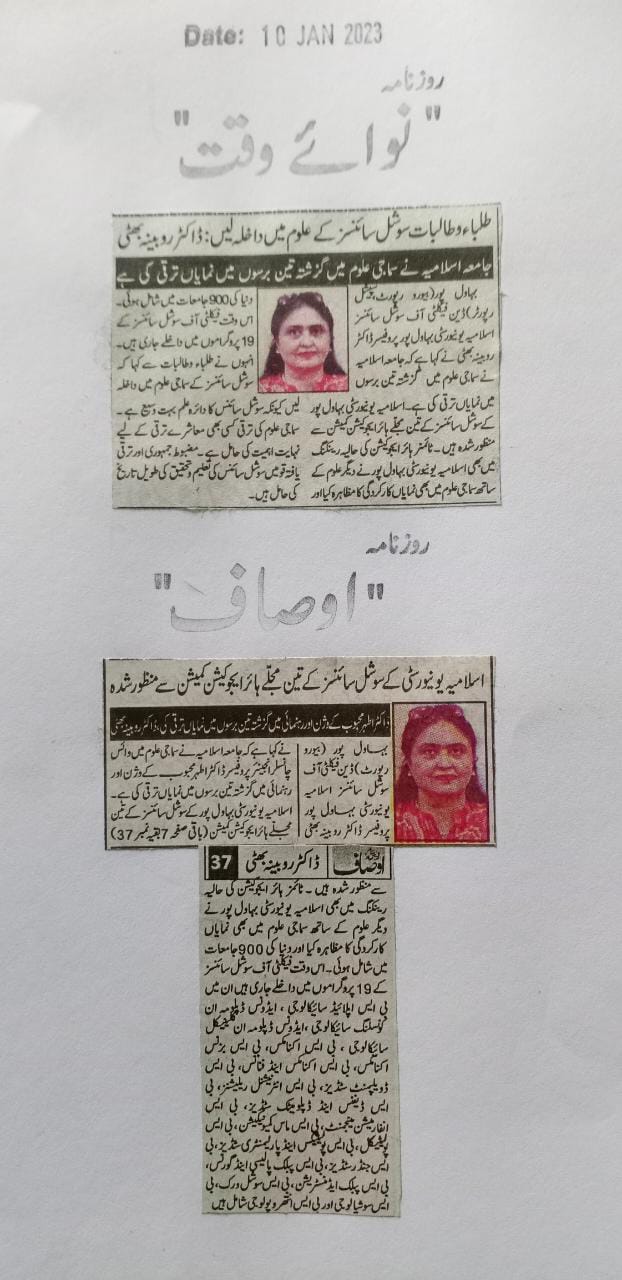 Date: 10 JAN 2023
روزنامہ
"نوائے وقت"
طلباء و طالبات سوشل سائنسز کے علوم میں داخلہ لیں: ڈاکٹر روبینہ بھٹی
جامعہ اسلامیہ نے سماجی علوم میں گزشتہ تین برسوں میں نمایاں ترقی کی ہے
بہاول پور (بیورو رپورٹ، سپیشل
رپورٹر) ڈین فیکلٹی آف سوشل سائنسز
اسلامیہ یونیورسٹی بہاول پور پروفیسر ڈاکٹر
روبینہ بھٹی نے کہا ہے کہ جامعہ اسلامیہ
نے سماجی علوم میں گزشتہ تین برسوں
میں نمایاں ترقی کی ہے۔ اسلامیہ یونیورسٹی بہاول پور
کے سوشل سائنسز کے تین مجلے ہائر ایجوکیشن کمیشن سے
منظور شدہ ہیں۔ ٹائمز ہائر ایجوکیشن کی حالیہ رینکنگ
میں بھی اسلامیہ یونیورسٹی بہاول پور نے دیگر علوم کے
ساتھ سماجی علوم میں بھی نمایاں کارکردگی کا مظاہرہ کیا اور
دنیا کی 900 جامعات میں شامل ہوئی۔
اس وقت فیکلٹی آف سوشل سائنسز کے
19 پروگراموں میں داخلے جاری ہیں۔
انہوں نے طلباء و طالبات سے کہا کہ
سوشل سائنسز کے سماجی علوم میں داخلہ
لیں کیونکہ سوشل سائنس کا دائرہ علم بہت وسیع ہے۔
سماجی علوم کی ترقی کسی بھی معاشرے ترقی کے لیے
نہایت اہمیت کی حامل ہے۔ مضبوط جمہوری اور ترقی
یافتہ قومیں سوشل سائنس کی تعلیم و تحقیق کی طویل تاریخ
کی حامل ہیں۔
روزنامہ
"اوصاف"
اسلامیہ یونیورسٹی کے سوشل سائنسز کے تین مجلے ہائر ایجوکیشن کمیشن سے منظور شدہ
ڈاکٹر اطہر محبوب کے وژن اور رہنمائی میں گزشتہ تین برسوں میں نمایاں ترقی کی، ڈاکٹر روبینہ بھٹی
بہاول پور (بیورو
رپورٹ) ڈین فیکلٹی آف
سوشل سائنسز اسلامیہ
یونیورسٹی بہاول پور
پروفیسر ڈاکٹر روبینہ بھٹی
نے کہا ہے کہ جامعہ اسلامیہ نے سماجی علوم میں وائس
چانسلر انجینئر پروفیسر ڈاکٹر اطہر محبوب کے وژن اور
رہنمائی میں گزشتہ تین برسوں میں نمایاں ترقی کی ہے۔
اسلامیہ یونیورسٹی بہاول پور کے سوشل سائنسز کے تین
مجلے ہائر ایجوکیشن کمیشن (باقی صفحہ 7 بقیہ نمبر 37)
اوصاف ڈاکٹر روبینہ بھٹی 37
سے منظور شدہ ہیں۔ ٹائمز ہائر ایجوکیشن کی حالیہ
رینکنگ میں بھی اسلامیہ یونیورسٹی بہاول پور نے
دیگر علوم کے ساتھ سماجی علوم میں بھی نمایاں
کارکردگی کا مظاہرہ کیا اور دنیا کی 900 جامعات
میں شامل ہوئی۔ اس وقت فیکلٹی آف سوشل سائنسز
کے 19 پروگراموں میں داخلے جاری ہیں ان میں
بی ایس اپلائیڈ سائیکالوجی، ایڈونس ڈپلومہ ان
کونسلنگ سائیکالوجی، ایڈونس ڈپلومہ ان کلینیکل
سائیکالوجی، بی ایس اکنامکس، بی ایس بزنس
اکنامکس، بی ایس اکنامکس اینڈ فنانس، بی ایس
ڈویلپمنٹ سٹڈیز، بی ایس انٹرنیشنل ریلیشنز، بی
ایس ڈیفنس اینڈ ڈپلومیٹک سٹڈیز، بی ایس
انفارمیشن مینجمنٹ، بی ایس ماس کمیونیکیشن، بی ایس
پولیٹیکل، بی ایس پولیٹکس اینڈ پارلیمنٹری سٹڈیز، بی
ایس جنڈر سٹڈیز، بی ایس پبلک پالیسی اینڈ گورننس،
بی ایس پبلک ایڈمنسٹریشن، بی ایس سوشل ورک، بی
ایس سوشیالوجی اور بی ایس انتھروپولوجی شامل ہیں